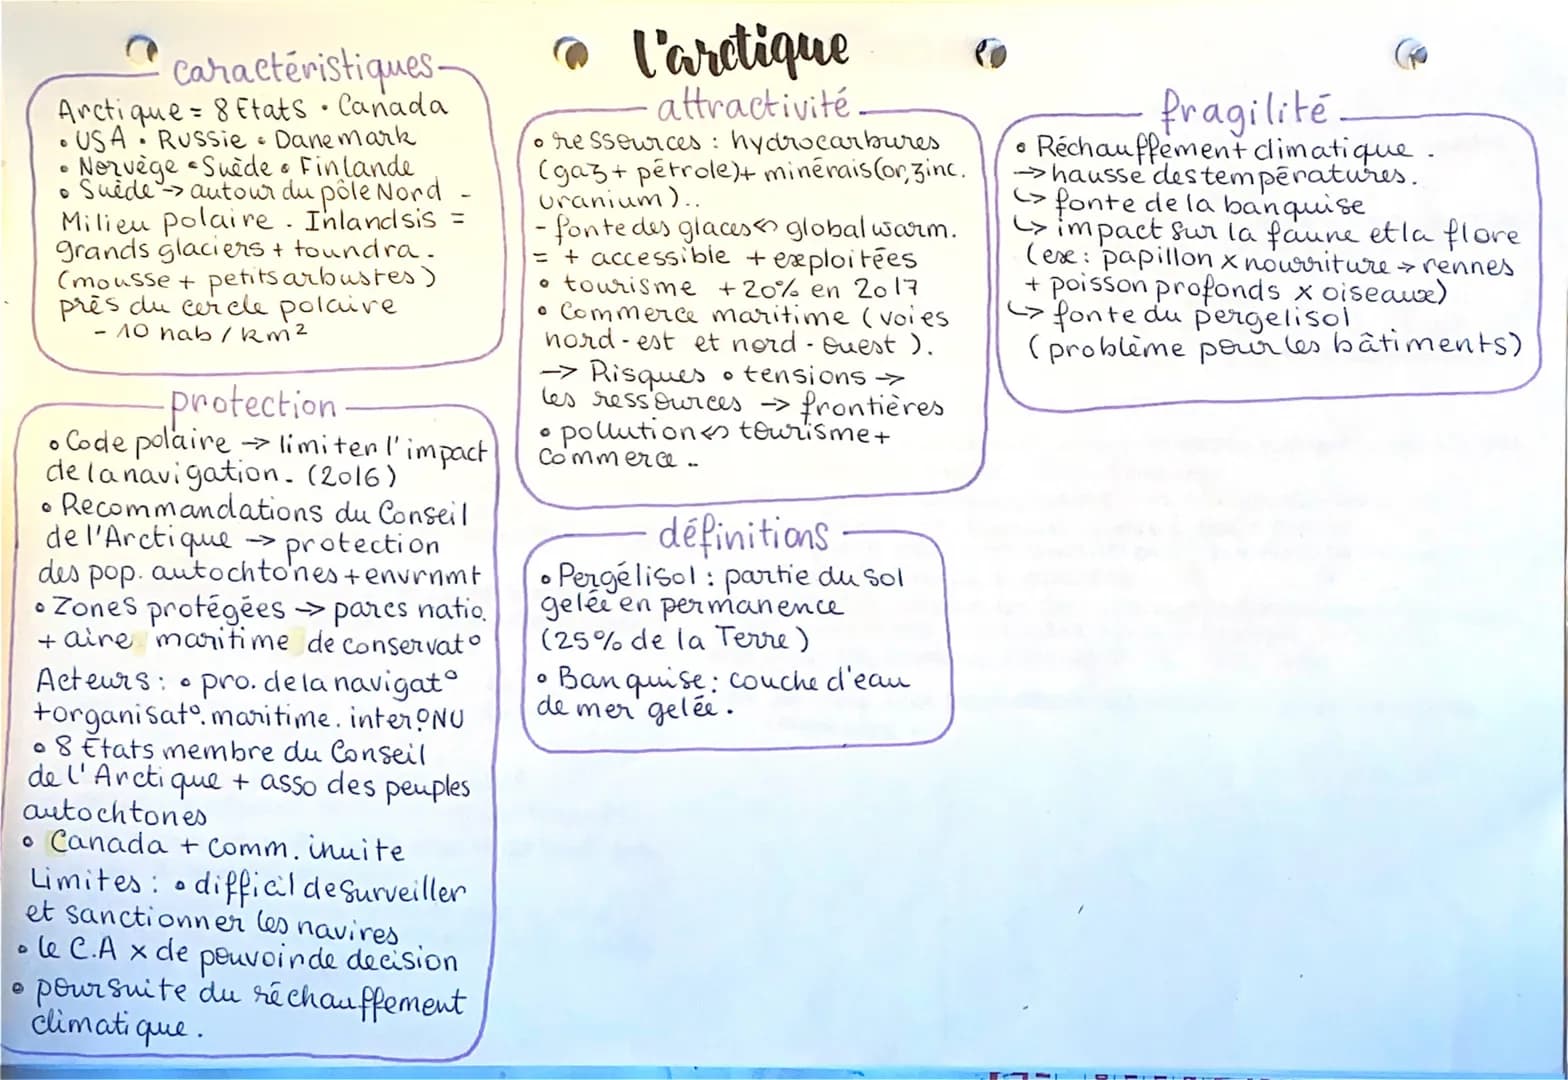 l'arctique
caractéristiques
Arctique = 8 Etats • Canada
• USA • Russie • Danemark
• Norvège • Suède • Finlande
• Suède → autour du pôle Nord -
Milieu polaire. Inlandsis =
grands glaciers + toundra.
(mousse + petits arbustes)
près du cercle polaire
- 10 hab / km²
protection
• Code polaire → limiter l'impact
de la navigation. (2016)
• Recommandations du Conseil
de l'Arctique → protection
des pop. autochtones + envrnmt
• Zones protégées → parcs natio.
+ aire maritime de conservat°
Acteurs : • pro. de la navigat°
+organisat°. maritime. inter ONU
• 8 Etats membre du Conseil
de l'Arctique + asso des peuples
autochtones
• Canada + comm. inuite
Limites : • difficil de surveiller
et sanctionner les navires
• le C.A x de pouvoir de decision
• poursuite du réchauffement
climatique.
attractivité
• ressources : hydrocarbures
(gaz + pétrole) + minérais (or, zinc.
uranium)..
- fonte des glaces <=> global warm.
= + accessible + exploitées
• tourisme +20% en 2017
• Commerce maritime (voies
nord-est et nord-Ouest).
→ Risques • tensions →
les ressources → frontières
• pollution <=> tourisme +
commerce..
définitions
• Pergélisol : partie du sol
gelée en permanence
(25% de la Terre)
• Banquise : couche d'eau
de mer gelée.
fragilité
• Réchauffement climatique.
→ hausse des températures.
↳ fonte de la banquise
↳ impact sur la faune et la flore
(exe : papillon x nourriture → rennes
+ poisson profonds x oiseaux)
↳ fonte du pergelisol
(problème pour les bâtiments)